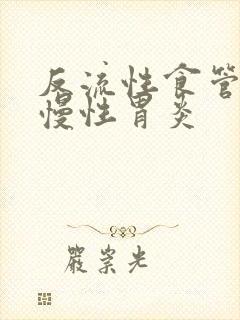 反流性食管
慢性胃炎
严崇光